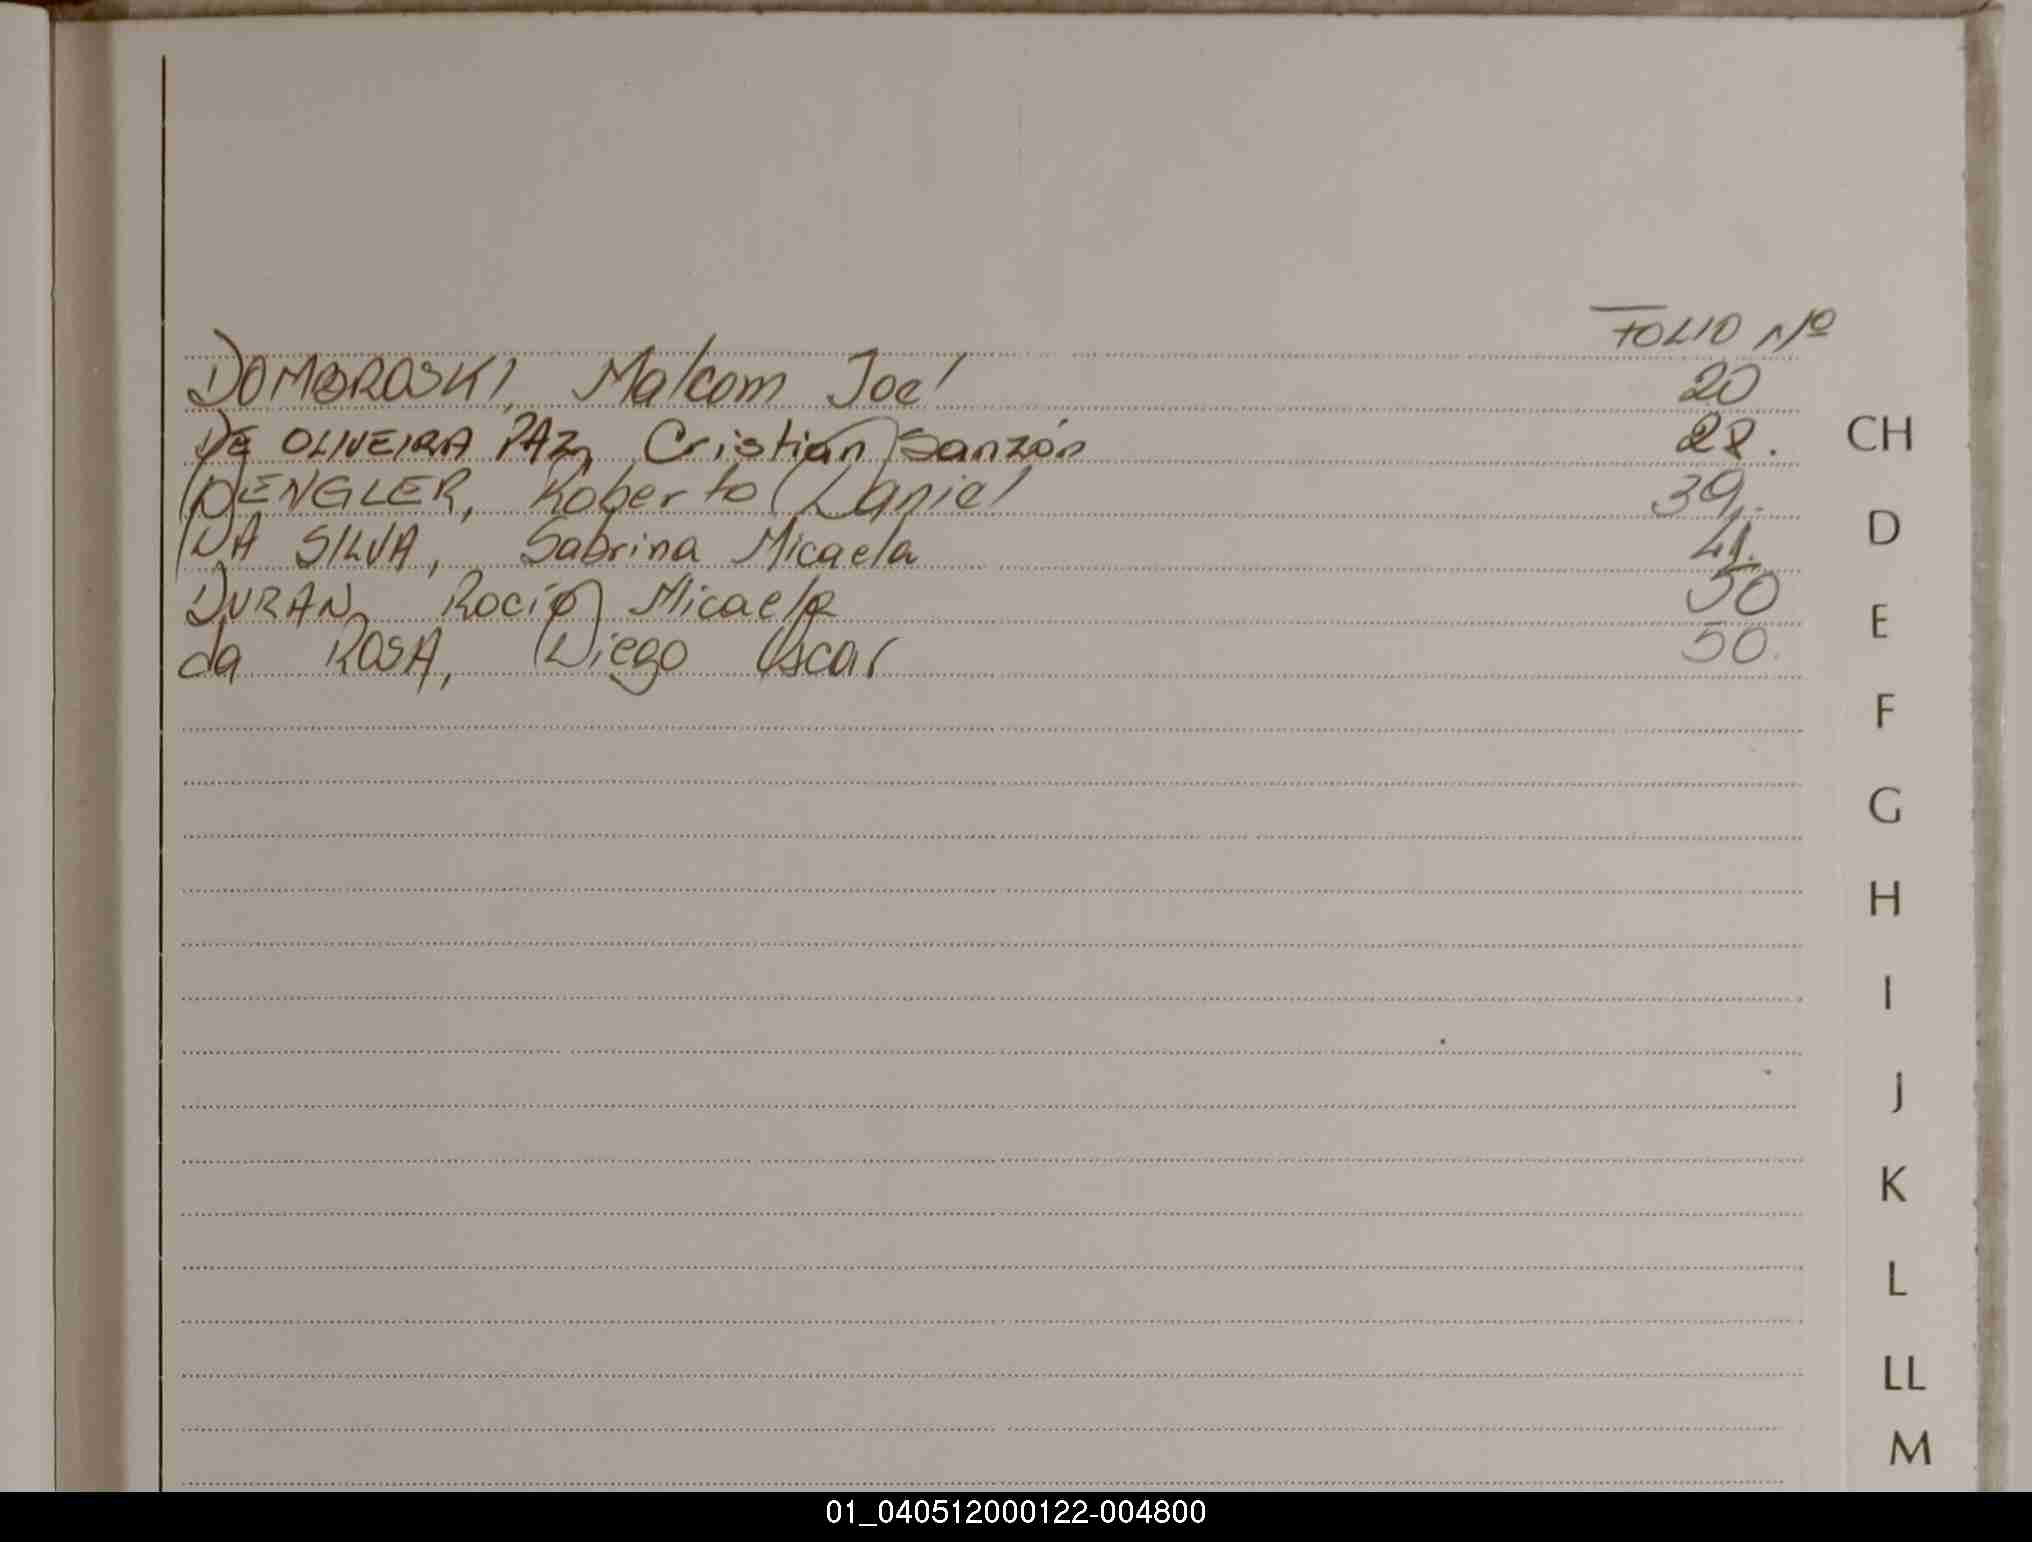 FOLIO Nº
DOMBROSKI, Malcom Joel 20
DE OLIVEIRA PAZ, Cristian Sanzón 28.
DENGLER, Roberto Daniel 39.
DA SILVA, Sabrina Micaela 41.
DURAN, Rocío Micaela 50
da ROSA, Diego Oscar 50.
CH
D
E
F
G
H
I
J
K
L
LL
M
01_040512000122-004800